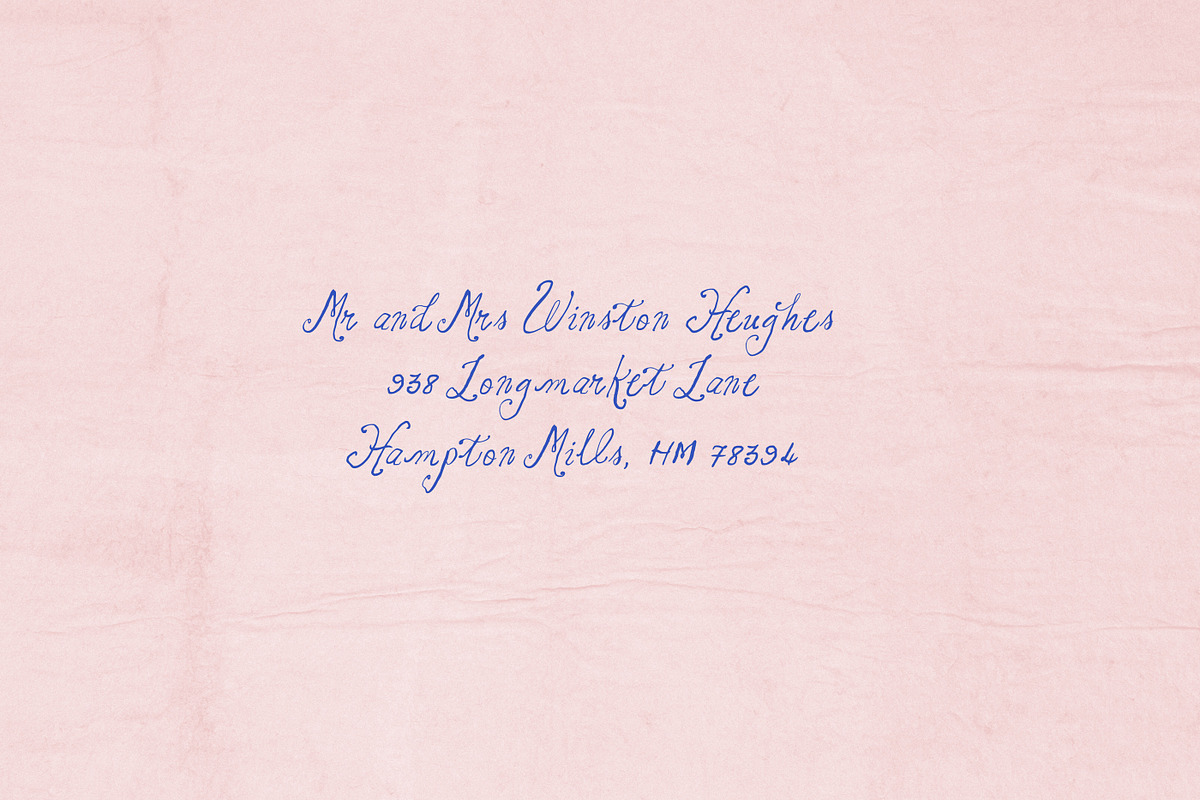 Mr and Mrs Winston Heughes
938 Longmarket Lane
Hampton Mills, HM 78394